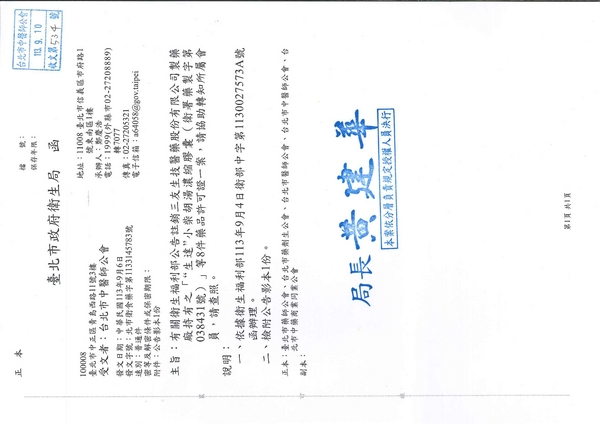 正本
檔　號：
保存年限：
臺北市政府衛生局　函
地址：11008 臺北市信義區市府路1
號東南區1樓
承辦人：鄭慶浩
電話：1999(外縣市02-27208889)
轉7077
傳真：02-27205321
電子信箱：a64058@gov.taipei
100008
臺北市中正區青島西路11號3樓
受文者：台北市中醫師公會
發文日期：中華民國113年9月6日
發文字號：北市衛食藥字第1133145783號
速別：普通件
密等及解密條件或保密期限：
附件：公告影本1份
主旨：有關衛生福利部公告註銷三友生技醫藥股份有限公司製藥
廠持有之「"生達"小柴胡湯濃縮膠囊（衛署藥製字第
038431號）」等8件藥品許可證一案，請協助轉知所屬會
員，請查照。
說明：
一、依據衛生福利部113年9月4日衛部中字第1130027573A號
函辦理。
二、檢附公告影本1份。
正本：臺北市藥師公會、台北市藥劑生公會、台北市醫師公會、台北市中醫師公會、台
北市中藥商業同業公會
副本：
局長 黃建華
本案依分層負責規定授權人員決行
第1頁 共1頁
台北市中醫師公會
113. 9. 10
收文第534號